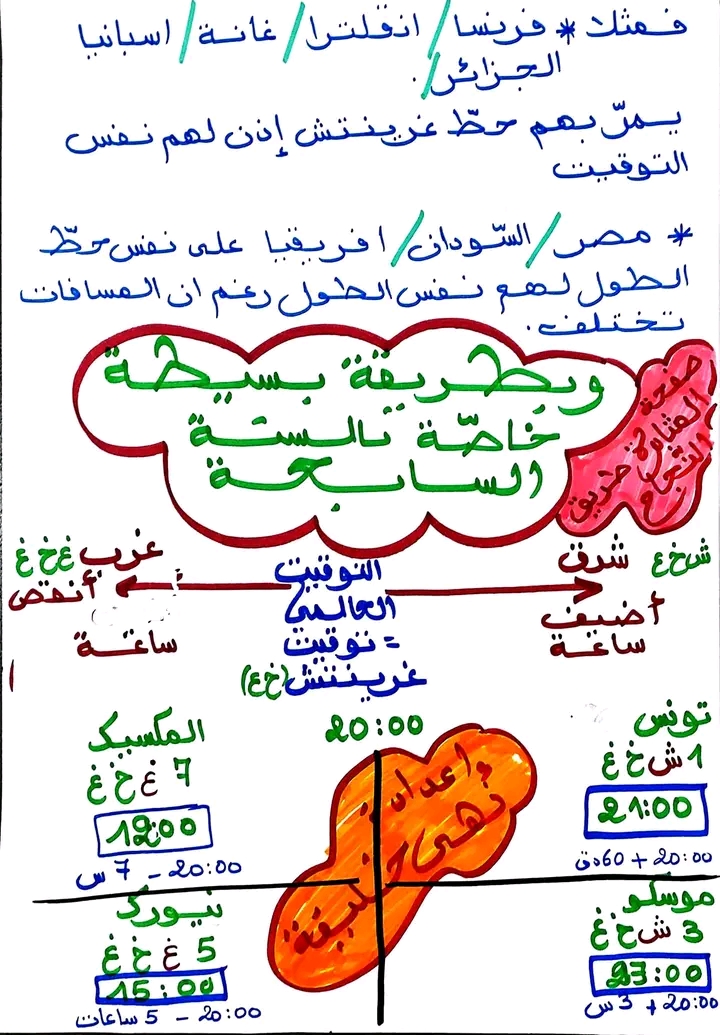 فمثلا * فرنسا / انقلترا / غانة / اسبانيا
الجزائر / .
يمرّ بهم خطّ غرينتش إذن لهم نفس
التوقيت
* مصر / السّودان / افريقيا على نفس خطّ
الطول لهم نفس الطول رغم ان المسافات
تختلف .
وبطريقة بسيطة
خاصّة بالسنة
السابعة
صفحة
المثابرة طريق
النجاح
ش خ غ شرق
أضيف
ساعة
التوقيت
العالمي
= توقيت
غرينتش (خ غ)
غرب غ خ غ
أنقص
ساعة
20:00
تونس
1 ش خ غ
21:00
20:00 + 60دق
المكسيك
7 غ خ غ
20:00 - 7 س
إعداد :
نهى خليفة
موسكو
3 ش خ غ
23:00
20:00 + 3 س
نيورك
5 غ خ غ
15:00
20:00 - 5 ساعات